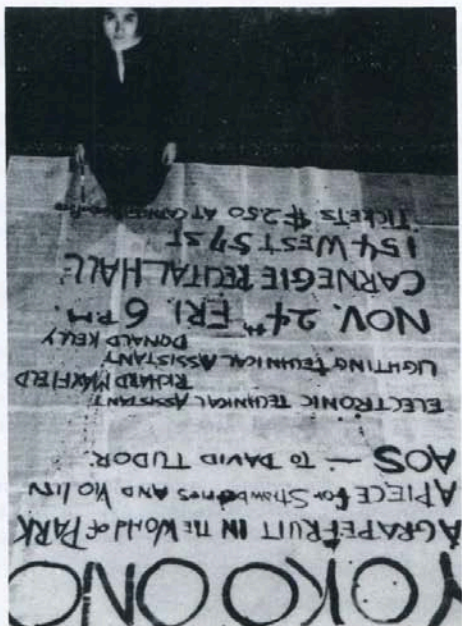 YOKO ONO
A GRAPEFRUIT IN THE WORLD OF PARK
A PIECE FOR STRAWBERRIES AND VIOLIN
AOS — TO DAVID TUDOR
ELECTRONIC TECHNICAL ASSISTANT
RICHARD MAXFIELD
LIGHTING TECHNICAL ASSISTANT
DONALD KELLY
NOV. 24th FRI. 6 PM.
CARNEGIE RECITAL HALL
154 WEST 57 ST
TICKETS $2.50 AT